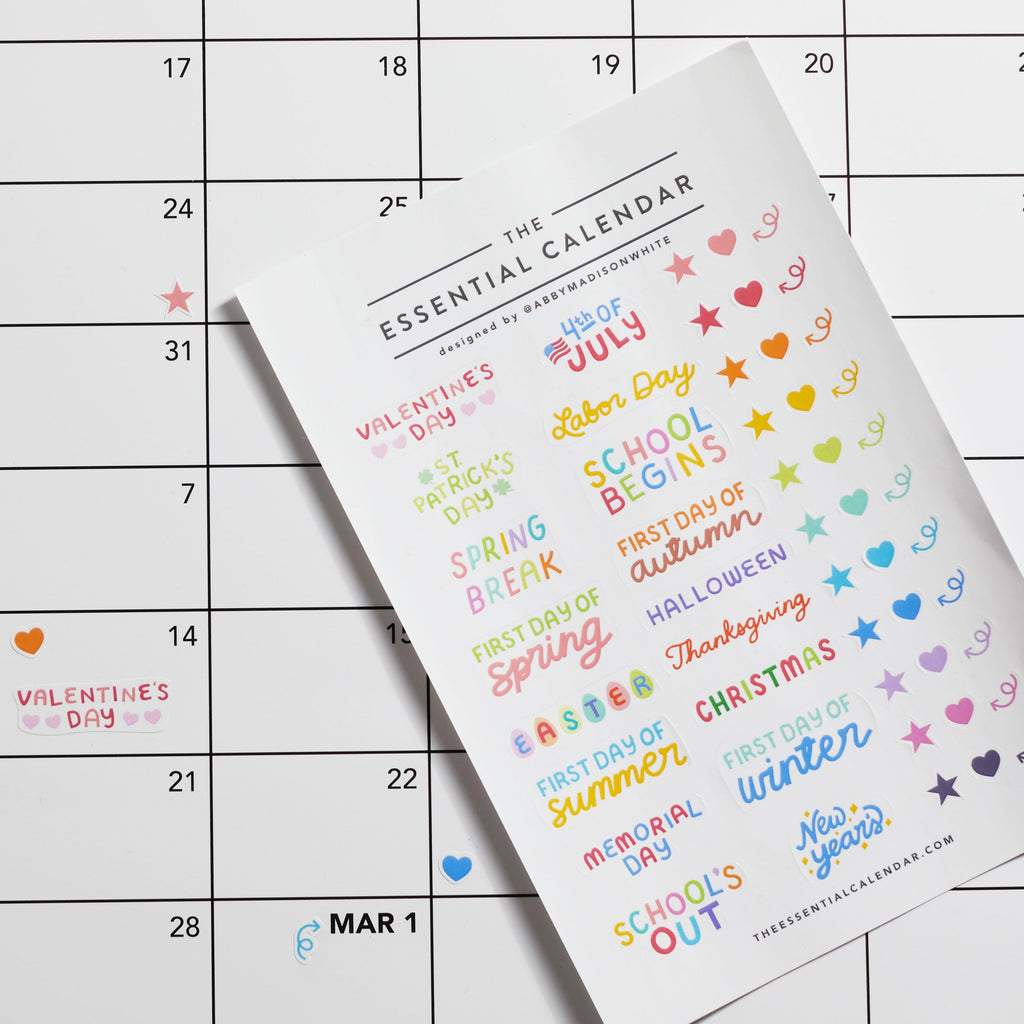 17
18
19
20
24
25
31
7
14
15
VALENTINE'S
DAY
21
22
28
MAR 1
THE
ESSENTIAL CALENDAR
designed by @ABBYMADISONWHITE
VALENTINE'S
DAY
ST.
PATRICK'S
DAY
SPRING
BREAK
FIRST DAY OF
spring
EASTER
FIRST DAY OF
summer
MEMORIAL
DAY
SCHOOL'S
OUT
4th OF
JULY
Labor Day
SCHOOL
BEGINS
FIRST DAY OF
autumn
HALLOWEEN
Thanksgiving
CHRISTMAS
FIRST DAY OF
winter
New
year's
THEESSENTIALCALENDAR.COM